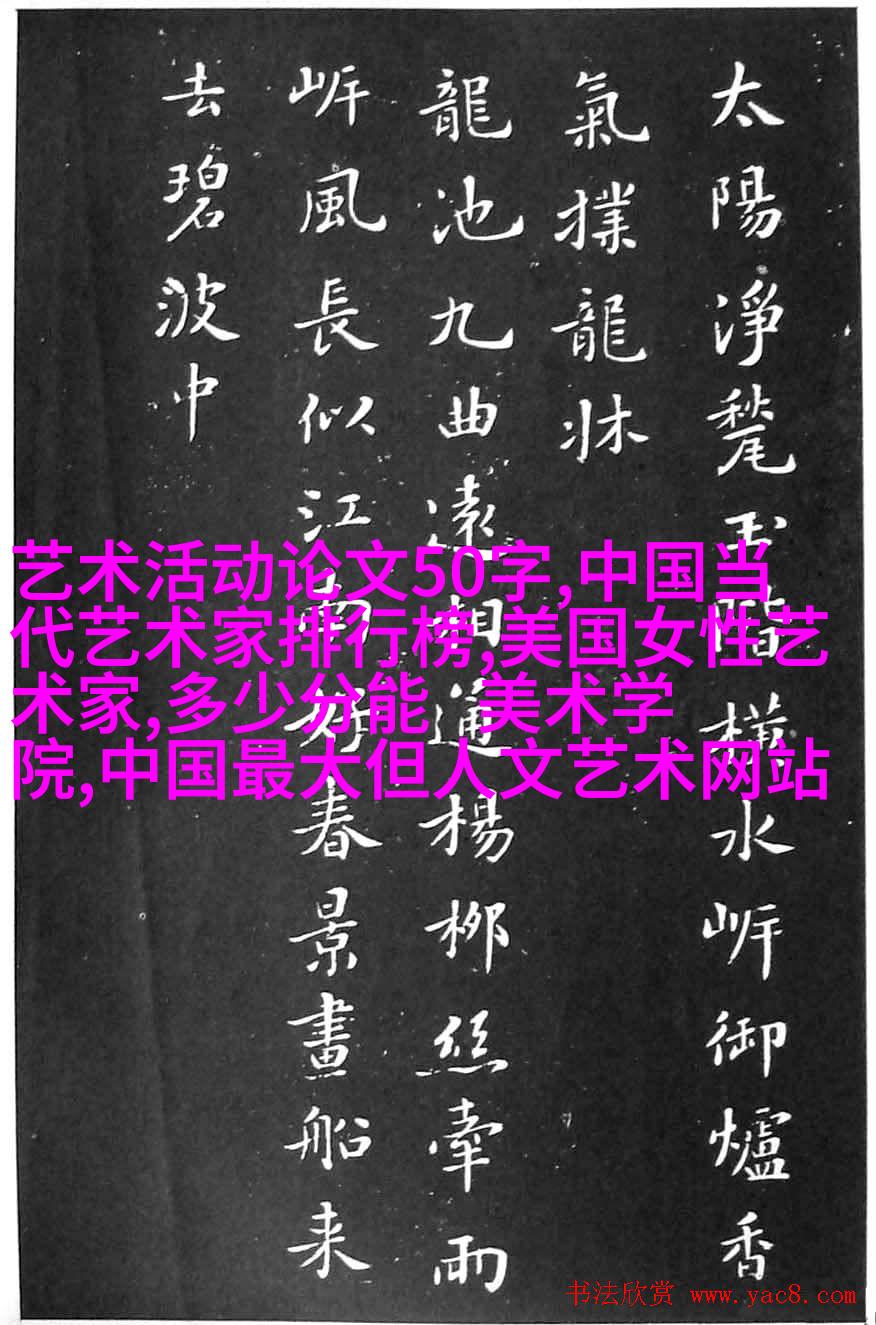 太陽淨甃玉階横水岸御爐香
氣撲龍牀
龍池九曲遠相通楊柳絲牽兩
岸風長似江南好春景畫船来
去碧波中
艺术活动论文50字,中国当
代艺术家排行榜,美国女性艺
术家,多少分能 美术学
院,中国最大但人文艺术网站
书法欣赏 www.yac8.com